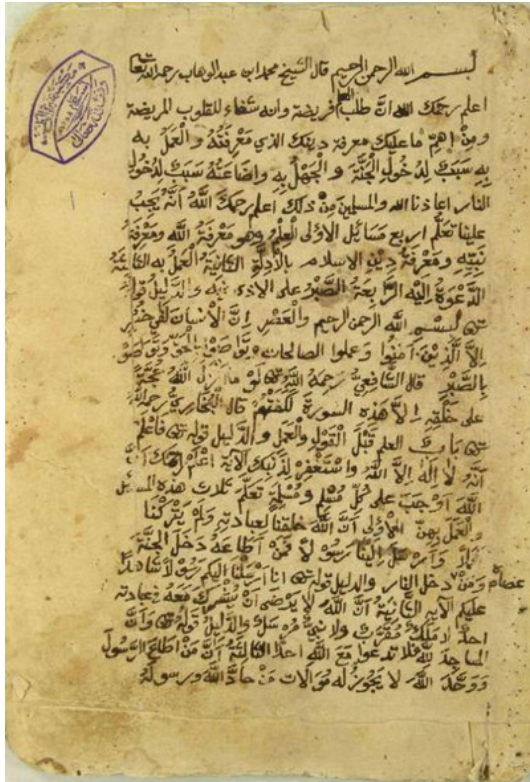 بسم الله الرحمن الرحيم قال الشيخ محمد ابن عبد الوهاب رحمه الله تعا
اعلم رحمك الله انَّ طلب العلم فريضة وانه شفاء للقلوب المريضة
ومِنْ اهمّ ما عليك معرفة دينك الذي مَعْرِفَتُهُ والْعَمَلُ به
بِهِ سَبَبٌ لِدُخُولِ الْجَنَّة والْجَهْلُ بِه واضاعَتُهُ سَبَبٌ لدُخُول
النار اعاذنا الله والمسلمين مِنْ ذلك اعلم رحمك اللَّهُ انَّهُ يَجِبُ
علينا تَعَلُّم اربع مسائل الأولى الْعِلْمُ وهو مَعْرِفَةُ الله ومَعْرِفَةُ
نَبِيِّهِ ومَعْرِفَةُ دِيْنِ الاسلام بالأَدِلَّة الثانيَةُ الْعَمَلُ به الثالثةُ
الدَّعْوَةُ اِلَيْه الرَّابِعَةُ الصَّبْرُ على الاذى فيه والدَّلِيلُ قوله
تعالى بِسْمِ اللَّه الرحمن الرحيم والْعَصْرِ اِنَّ الْأِنْسَانَ لَفِي خُسْرٍ
اِلاَّ الَّذِيْنَ آمَنُوا وَعملوا الصالحات وتَوَاصَوْا بِالْحَقّ وَتَوَاصَوْ
بِالصَّبْرِ قال الشَّافِعِيُّ رَحِمَهُ اللَّهُ تعالى لَوْ ما اَنْزَلَ اللَّهُ حُجَّةً
على خَلْقِهِ اِلاَّ هذه السورة لَكَفَتْهُمْ قال الْبُخَارِيُّ رحمه اللَّهُ
تعالى بَابٌ العلم قَبْلَ الْقَوْلِ والْعَمَل والدَّلِيل قوله تعالى فَاعْلَمْ
اَنَّهُ لاَ اِلَهَ اِلاَّ اللَّهُ واسْتَغْفِرْ لِذَنْبِكَ الآية اِعْلَمْ رحمك اَنَّ
اللَّهَ اَوْجَبَ عَلَى كُلِّ مُسْلِمٍ ومُسْلِمَةٍ تَعَلُّمَ ثلاث هذه المسائل
والْعَمَلَ بِهِنَّ الْأُوْلَى اَنَّ اللَّهَ خَلَقَنَا لعبادتِه ولَمْ يَتْرُكْنَا
وَاَرْسَلَ اِلَيْنَا رَسُوْلاً فَمَنْ اَطَاعَهُ دَخَلَ الْجَنَّةَ
عصاه وَمَنْ دخل النار والدليل قوله تعالى انا اَرْسَلْنَا اليكم رَسُوْلاً شَاهِدًا
عليكم الآية الثَّانِيَةُ اَنَّ اللَّهَ لاَ يَرْضَى اَنْ يُشْرَكَ مَعَهُ في عبادته
احدٌ لا مَلَكٌ مُقَرَّبٌ ولا نبيٌّ مُرْسَلٌ والدَّلِيْلُ قَوْلُهُ تعالى وَاَنَّ
المساجدَ لِلَّهِ فلا تدعوا مَعَ اللَّهِ احدًا الثالثَةُ اَنَّ مَنْ اطاعَ الرَّسُولَ
وَوَحَّدَ اللَّهَ لا يَجُوزُ لَهُ مُوَالات مَنْ حَادَّ اللَّهَ ورسولَهُ